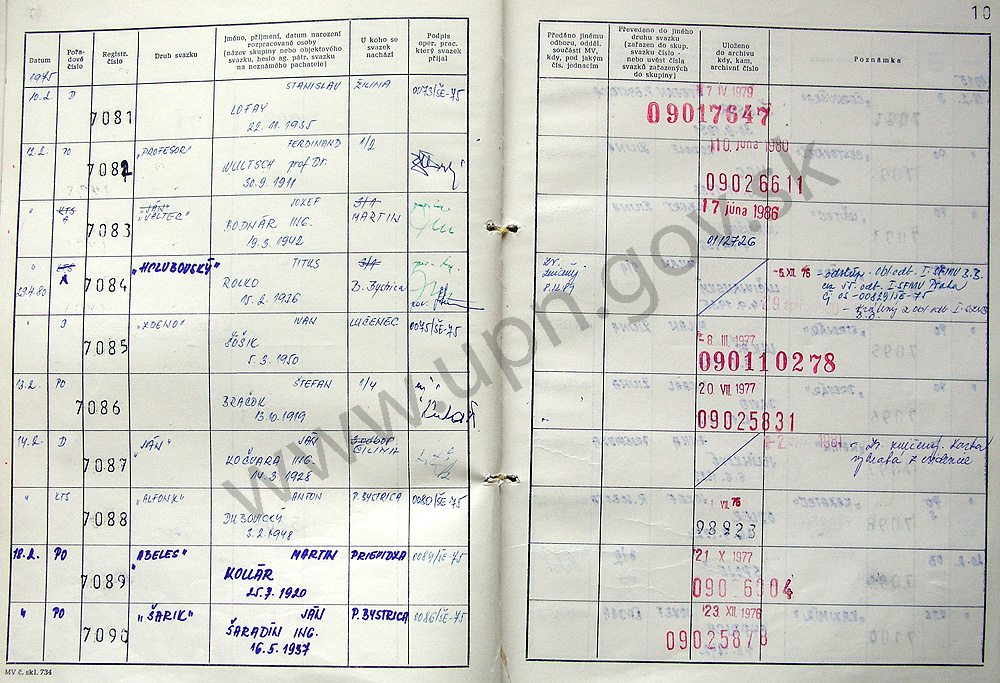 10
Datum
Pořa-
dové
číslo
Registr.
číslo
Druh svazku
Jméno, příjmení, datum narození
rozpracované osoby
(název skupiny nebo objektového
svazku, heslo ag. pátr. svazku
na neznámého pachatele)
U koho se
svazek
nachází
Podpis
oper. prac.
který svazek
přijal
Předáno jinému
odboru, odděl.
součásti MV,
kdy, pod jakým
čís. jednacím
Převedeno do jiného
druhu svazku
(zařazen do skup.
svazku číslo -
nebo uvést čísla
svazků zařazených
do skupiny)
Uloženo
do archivu
kdy, kam,
archivní číslo
Poznámka
1975
10.2. D 7081 STANISLAV ŽILINA 0073/ŠE-75
LOFAY
22.11.1935
17 IV 1979
09017647
12.2. PO 7082 "PROFESOR" FERDINAND 1/2
WULTSCH prof Dr.
30.9.1911
10. júna 1980
09026611
" KTS A 7083 "JÁN" "VALTER" JOZEF
BODNÁR ING. MARTIN
19.3.1942
17 júna 1986
01/2726
" KTS A 7084 "HOLUBOVSKÝ" TITUS
29.4.80
ROLKO B. Bystrica
15.2.1926
8.12.79
-5. XII. 75
I. SFMV Praha
" D 7085 "ZDENO" IVAN LUČENEC 0075/ŠE-75
ŠÓŠIK
5.3.1950
-8. III. 1977
090110278
13.2. PO 7086 ŠTEFAN 1/4
BRAČOK
13.10.1919
20 VII 1977
09025831
14.2. D 7087 "JÁN" JÁN
KOČVARA ING. ŽILINA
14.3.1928
1981
" KTS 7088 "ALFONZ" ANTON P. BYSTRICA 0080/ŠE-75
DUBOVICKÝ
3.2.1948
VII 75
98923
18.2. PO 7089 "ABELES" MARTIN PRIEVIDZA 0084/ŠE-75
KOLLÁR
25.7.1920
21 X 1977
09026004
" PO 7090 "ŠARIK" JÁN P. BYSTRICA 0086/ŠE-75
ŠARADÍN ING.
16.5.1937
23. XII. 1976
09025878
MV č. skl. 734
www.upn.gov.sk